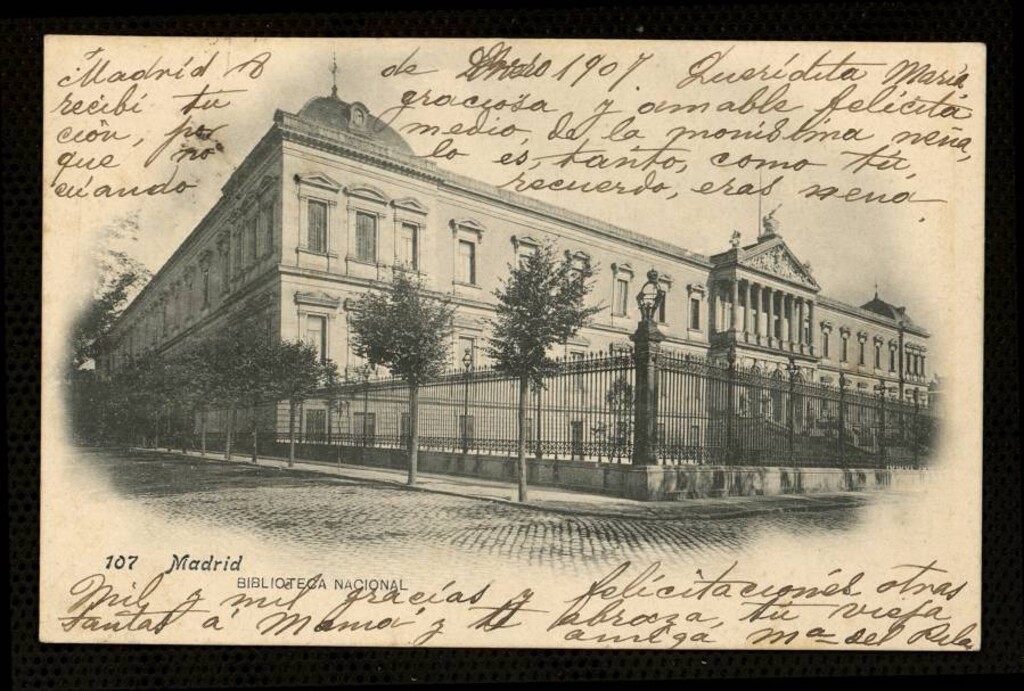 Madrid 8 de Enero 1907. Querídita María,
recibí tu graciosa y amable felicita
ción, por medio, de la monisima nena,
que no lo es, tanto, como tu,
cuando recuerdo, eras nena.
107 Madrid
BIBLIOTECA NACIONAL
Mil y mil gracías y felicitacionés otras
tantas á Mamá y te abraza, tu vieja
amiga Mª del Pilar